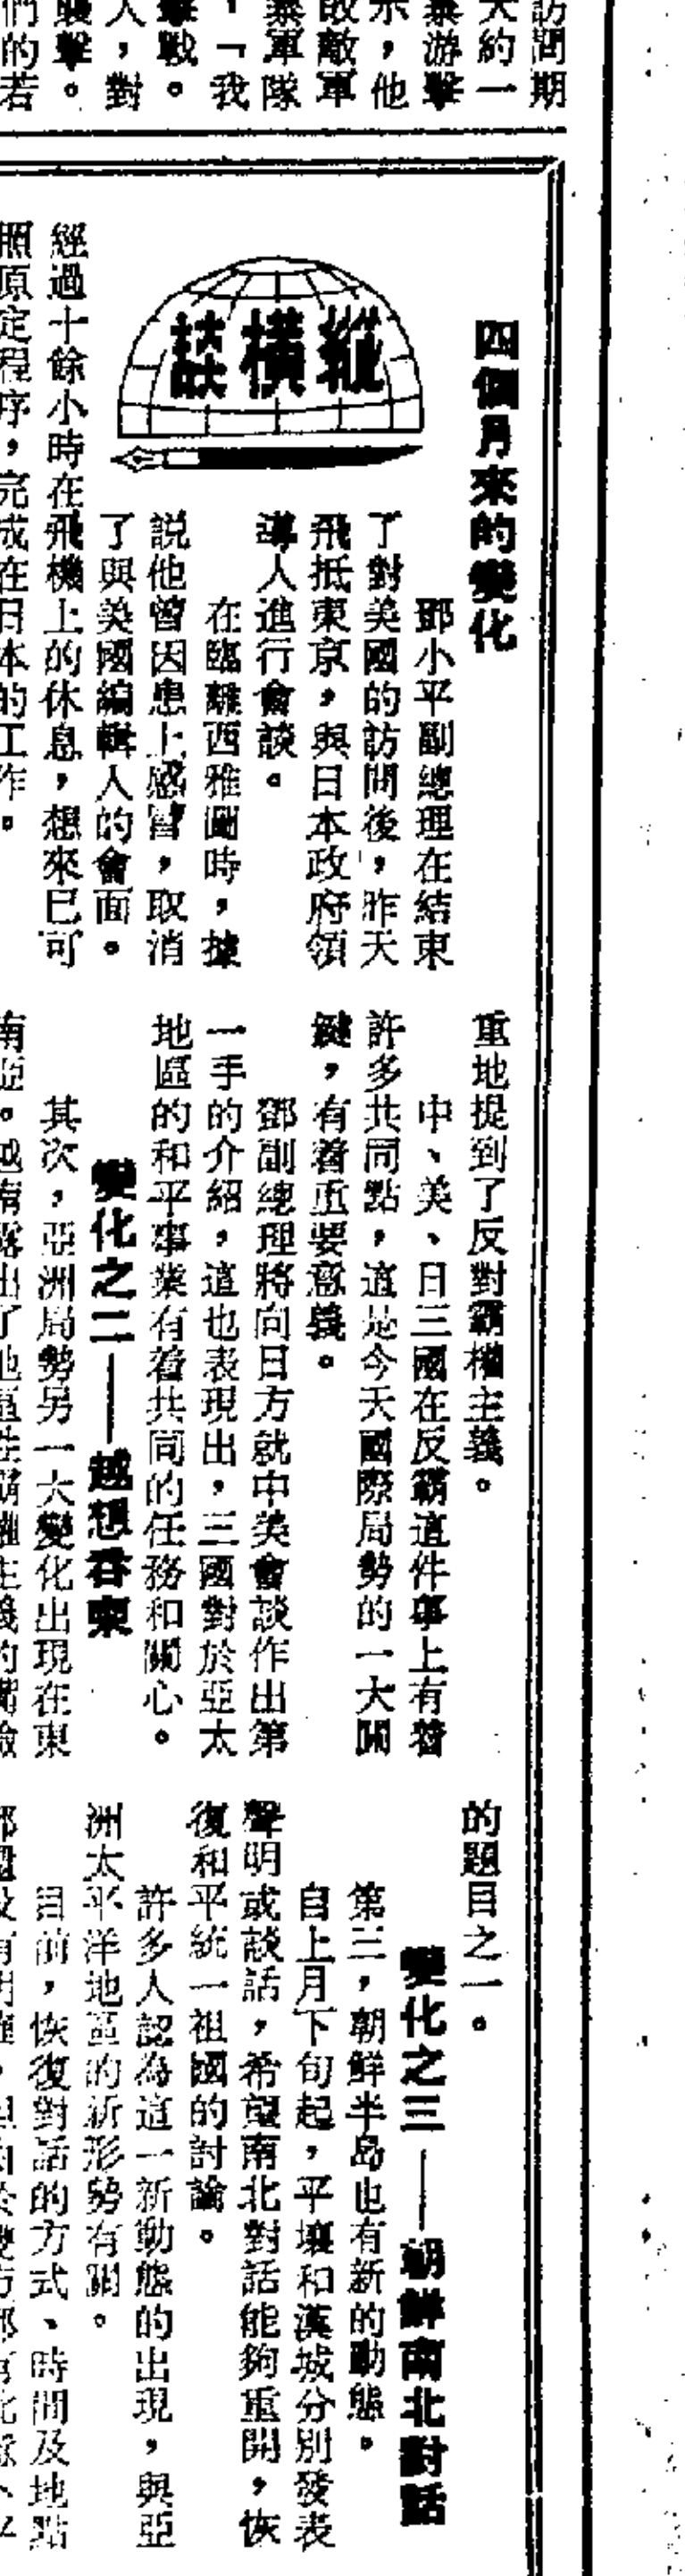 訪問期
大約一
暴游擊
示，他
敗敵軍
暴軍隊
，「我
擊戰。
人，對
襲擊。
們的若
縱橫談
四個月來的變化
鄧小平副總理在結束
了對美國的訪問後，昨天
飛抵東京，與日本政府領
導人進行會談。
在臨離西雅圖時，據
說他曾因患上感冒，取消
了與美國編輯人的會面。
經過十餘小時在飛機上的休息，想來已可
照原定程序，完成在日本的工作。
重地提到了反對霸權主義。
中、美、日三國在反霸這件事上有着
許多共同點，這是今天國際局勢的一大關
鍵，有着重要意義。
鄧副總理將向日方就中美會談作出第
一手的介紹，這也表現出，三國對於亞太
地區的和平事業有着共同的任務和關心。
變化之二——越想吞柬
其次，亞洲局勢另一大變化出現在東
南亞。越南露出了地區性霸權主義的
的題目之一。
變化之三——朝鮮南北對話
第三，朝鮮半島也有新的動態。
自上月下旬起，平壤和漢城分別發表
聲明或談話，希望南北對話能夠重開，恢
復和平統一祖國的討論。
許多人認為這一新動態的出現，與亞
洲太平洋地區的新形勢有關。
目前，恢復對話的方式、時間及地點